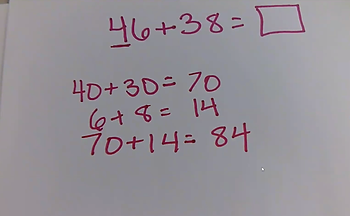 46+38=□
40+30=70
6+8=14
70+14=84